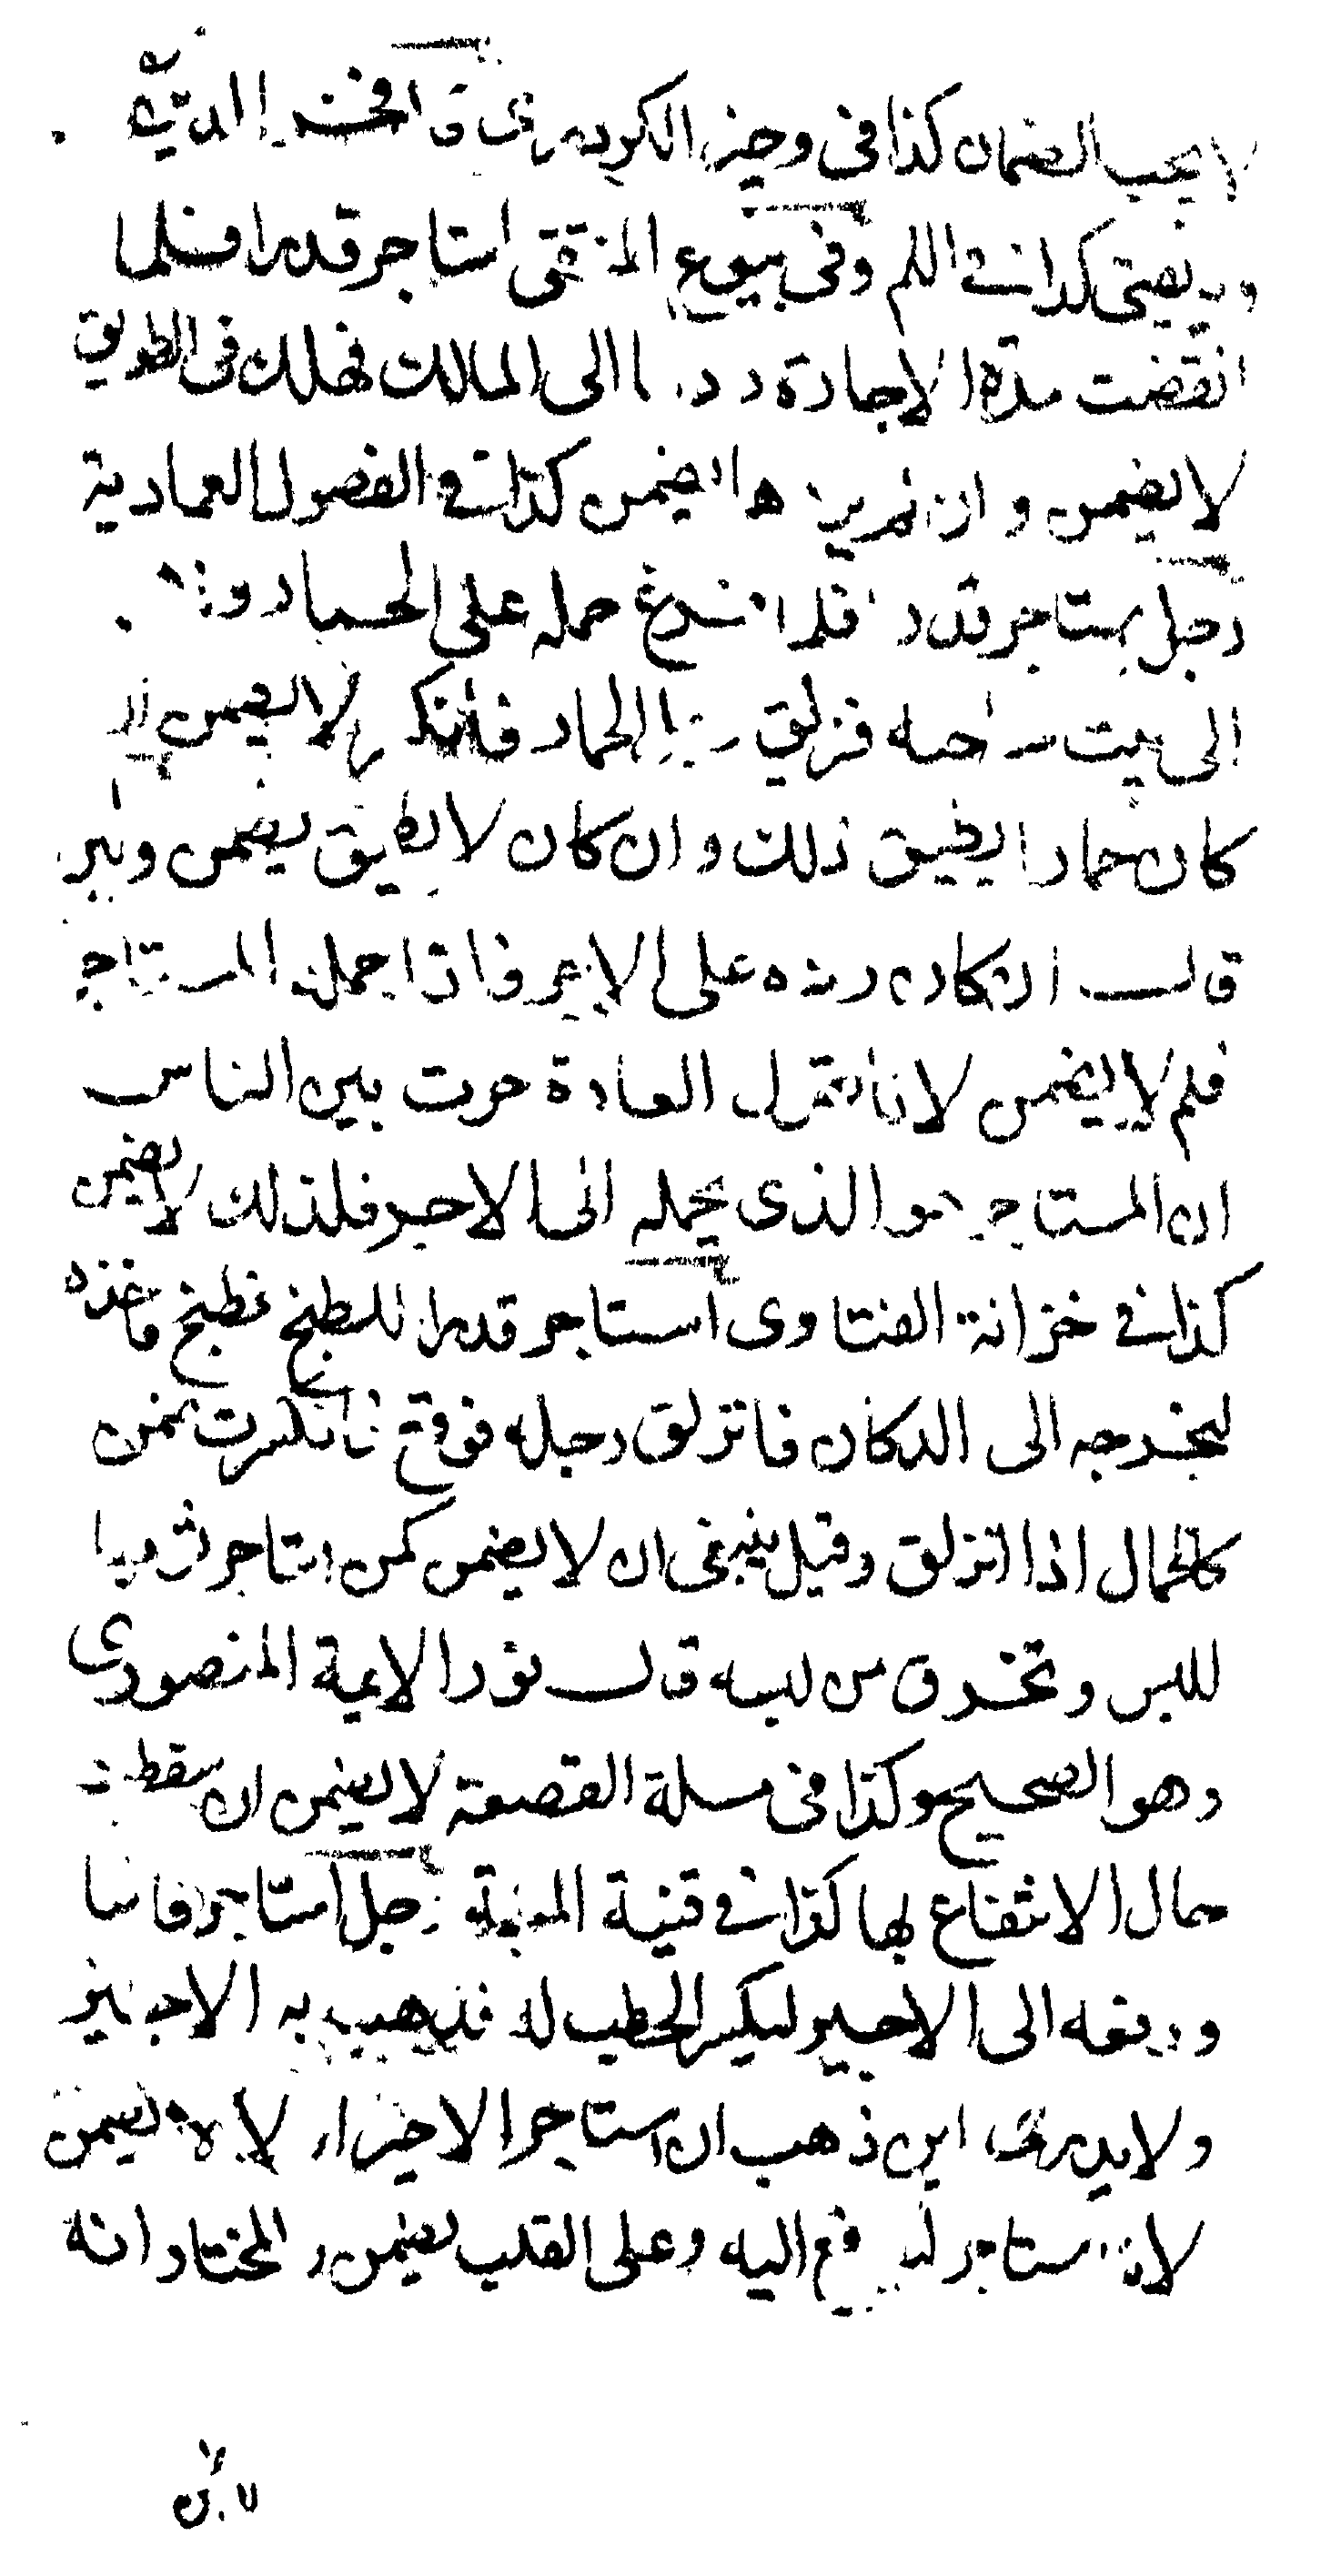 لا يجب الضمان كذا في وجيز الكردري قا فخر الدين
وبه يفتى كذا في اللم وفي بيوع المنتقى استاجر قدرا فلما
انقضت مدة الاجارة رد ا الى المالك فهلك في الطريق
لا يضمن وان لم يرد ها يضمن كذا في الفصول العمادية
رجل استاجر قدرا فلما فرغ حمله على الحمار و
الى بيت صاحبه فزلق رجل الحمار فانكسر لا يضمن ان
كان حمارا يطيق ذلك وان كان لا يطيق يضمن
قال ان كان رده على الاجير فاذا حمله المستاجر
فلم لا يضمن لانا نقول العادة جرت بين الناس
ان المستاجر هو الذي يحمله الى الاجير فلذلك لا يضمن
كذا في خزانة الفتاوى استاجر قدرا للطبخ فطبخ فاخذه
ليخرجه الى الدكان فانزلق رجله فوقع فانكسرت يضمن
كالحمال اذا انزلق وقيل ينبغي ان لا يضمن كمن استاجر ثوبا
للبس وتخرق من لبسه قال نور الايمة المنصوري
وهو الصحيح وكذا في مسلة القصعة لا يضمن ان سقطت
حال الانتفاع بها كذا في قنية المنية رجل استاجر فاسا
ودفعه الى الاجير ليكسر الحطب له فذهب به الاجير
ولا يدري اين ذهب ان استاجر الاجير اولا لا يضمن
لانه استاجر ليدفع اليه وعلى القلب يضمن والمختار انه